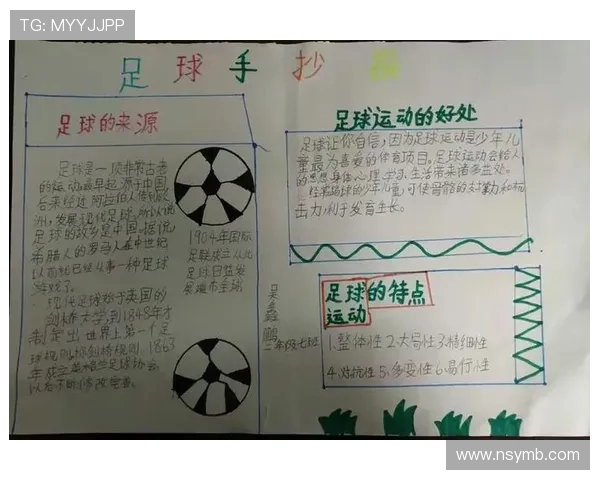 TG: MYYJJPP
足球手抄报
足球的来源
足球是一项非常古老
的运动。最早起源于中国,
后来经过阿拉伯人传到欧
洲,发展现代足球。所以说
足球的故乡是中国。据说,
希腊人的罗马人在中世纪
以前就已经从事一种足球
游戏了。
现代足球始于英国的
剑桥大学,到1848年才
制定出世界上第一个足
球规则称剑桥规则。1863
年成立英格兰足球协会,
以后不断修改完善。
1904年国际
足联成立从此
足球日益发
展遍布全球
二年级七班
足球运动的好处
足球让你自信,因为足球运动是少年儿
童最为喜爱的体育项目。足球运动会给人
的思想身体心理学习、生活带来诸多益处。
经常踢球的少年儿童,可使骨骼的
击力,利于发育生长。
足球的特点
运动
1.整体性 2.大局性 3.精细性
4.对抗性 5.多变性 6.易行性
www.nsymb.com